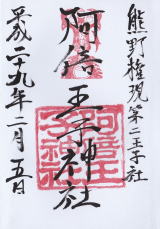 熊野権現第二王子社
阿倍王子神社
平成二十九年二月五日
阿倍王子神社